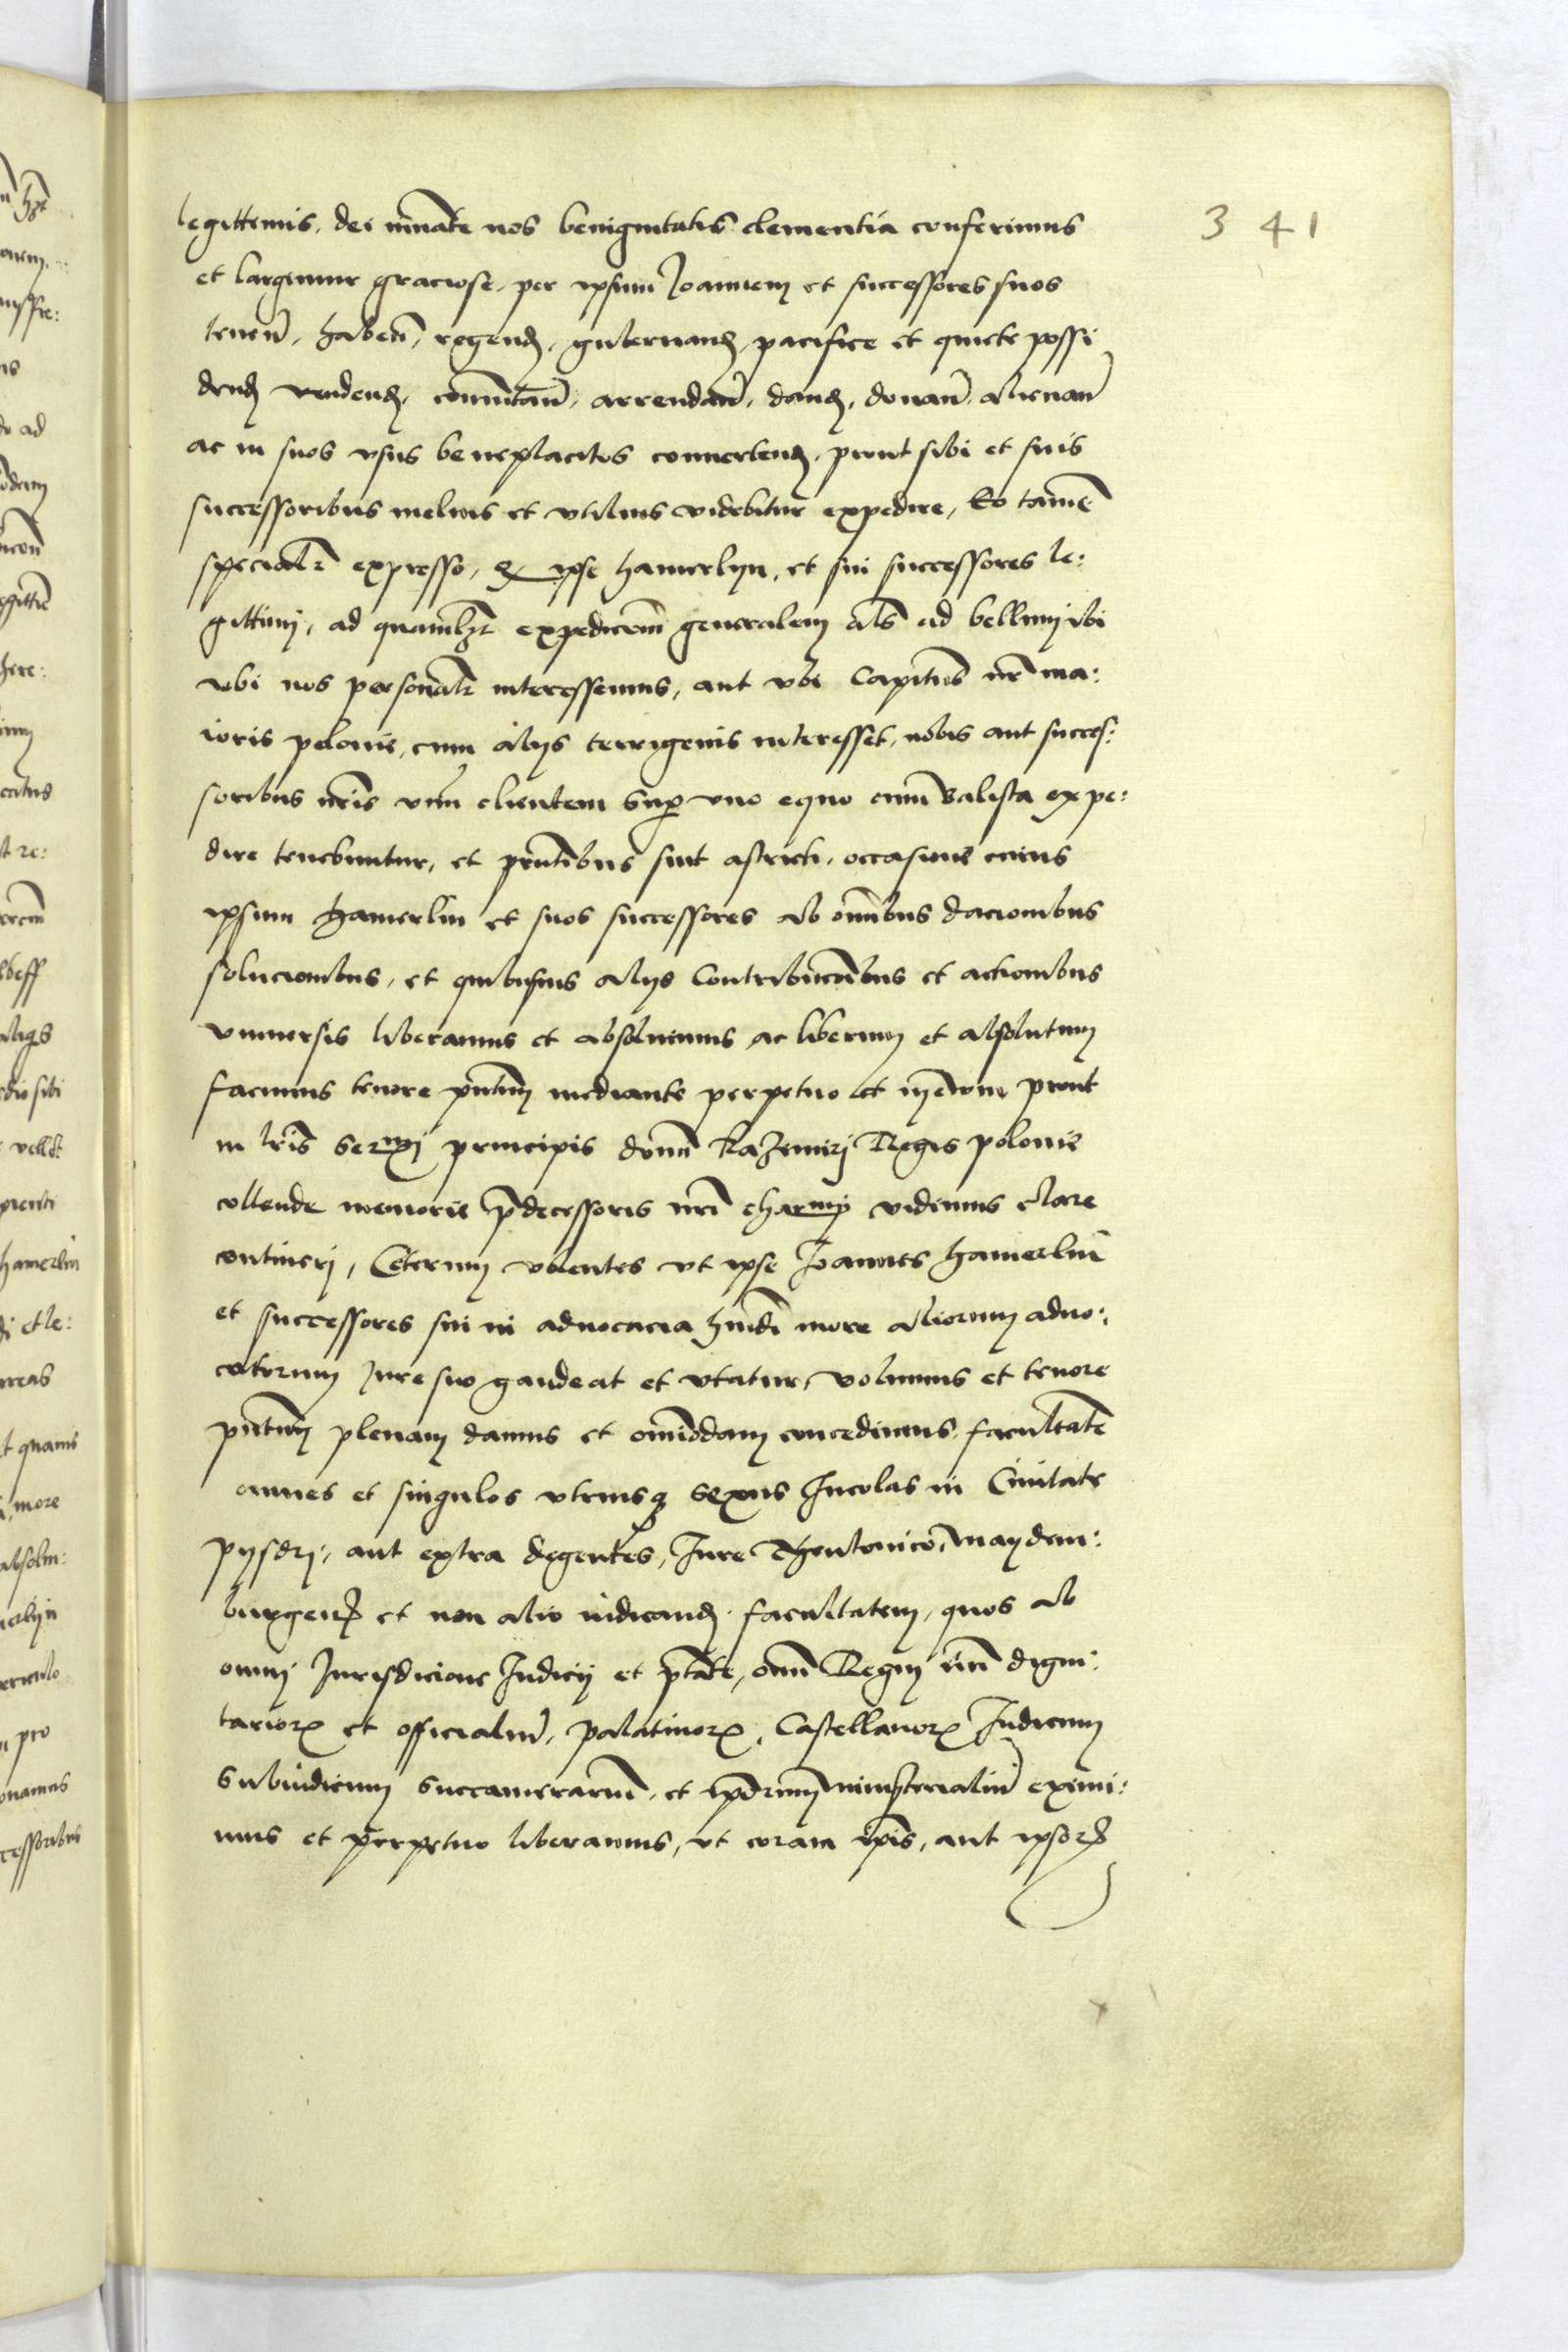 legittimis, dei innate nos benignitatis clementia conferimus
341
et largimur graciose, per ipsum Joannem et successores suos
tenen̄, haben̄, regend, gubernand, pacifice et quiete possi
dend vendend, comutan̄, arrendan̄, dand, donan̄, alienan̄
ac in suos vsus beneplacitos conuertend, prout sibi et suis
successoribus melius et vtilius videbitur expedire, Eo tamē
specialr̄ expresso, ipse hamerlyn, et sui successores le:
gittimi, ad quamlꝫ expedicōm generalem al̄s ad bellum ibi
vbi nos personalr̄ interessemus, aut vbi Capitn̄s nr̄ ma:
ioris polonie, cum alijs terrigenis interesset, nobis aut succes:
soribus nr̄is vnū clientem sup vno equo cum balista expe:
dire tenebuntur, et pn̄tibus sint astricti, occasione cuius
ipsum hamerlin et suos successores ab om̄ibus dacionibus
solucionibus, et quibusuis alijs Contribucōibus et actionibus
vniuersis liberamus et absoluimus, ac liberum et absolutum
facimus tenore pn̄tium mediante perpetuo et in euum, prout
in lr̄is Serm̄i principis domī Kazimirj Regis polonie
collende memorie p̄decessoris nr̄i charmi vidimus clare
contineri, Ceterum volentes vt ipse Joannes hamerlin̄
et successores sui in aduocacia hmōi more aliorum aduo:
catorum Jure suo gaudeat et vtatur, volumus et tenore
pn̄tium plenam damus et om̄imodam concedimus facultatē
omnes et singulos vtriusqꝫ sexus Incolas in Ciuitate
pijsdrj, aut extra degentes, Jure Theutonico, maydem:
burgen̄ et non alio iudicand facultatem, quos ab
omni Jurisdicione Judicij et p̄tate, om̄ Regni nr̄i digni:
tarioꝝ et officialiū, palatinoꝝ, Castellanoꝝ Judicum
Subiudicum Succamerariorū, et ip̄orum ministerialiū eximi:
mus et perpetuo liberamus, vt coram ip̄is, aut ipsoꝝ